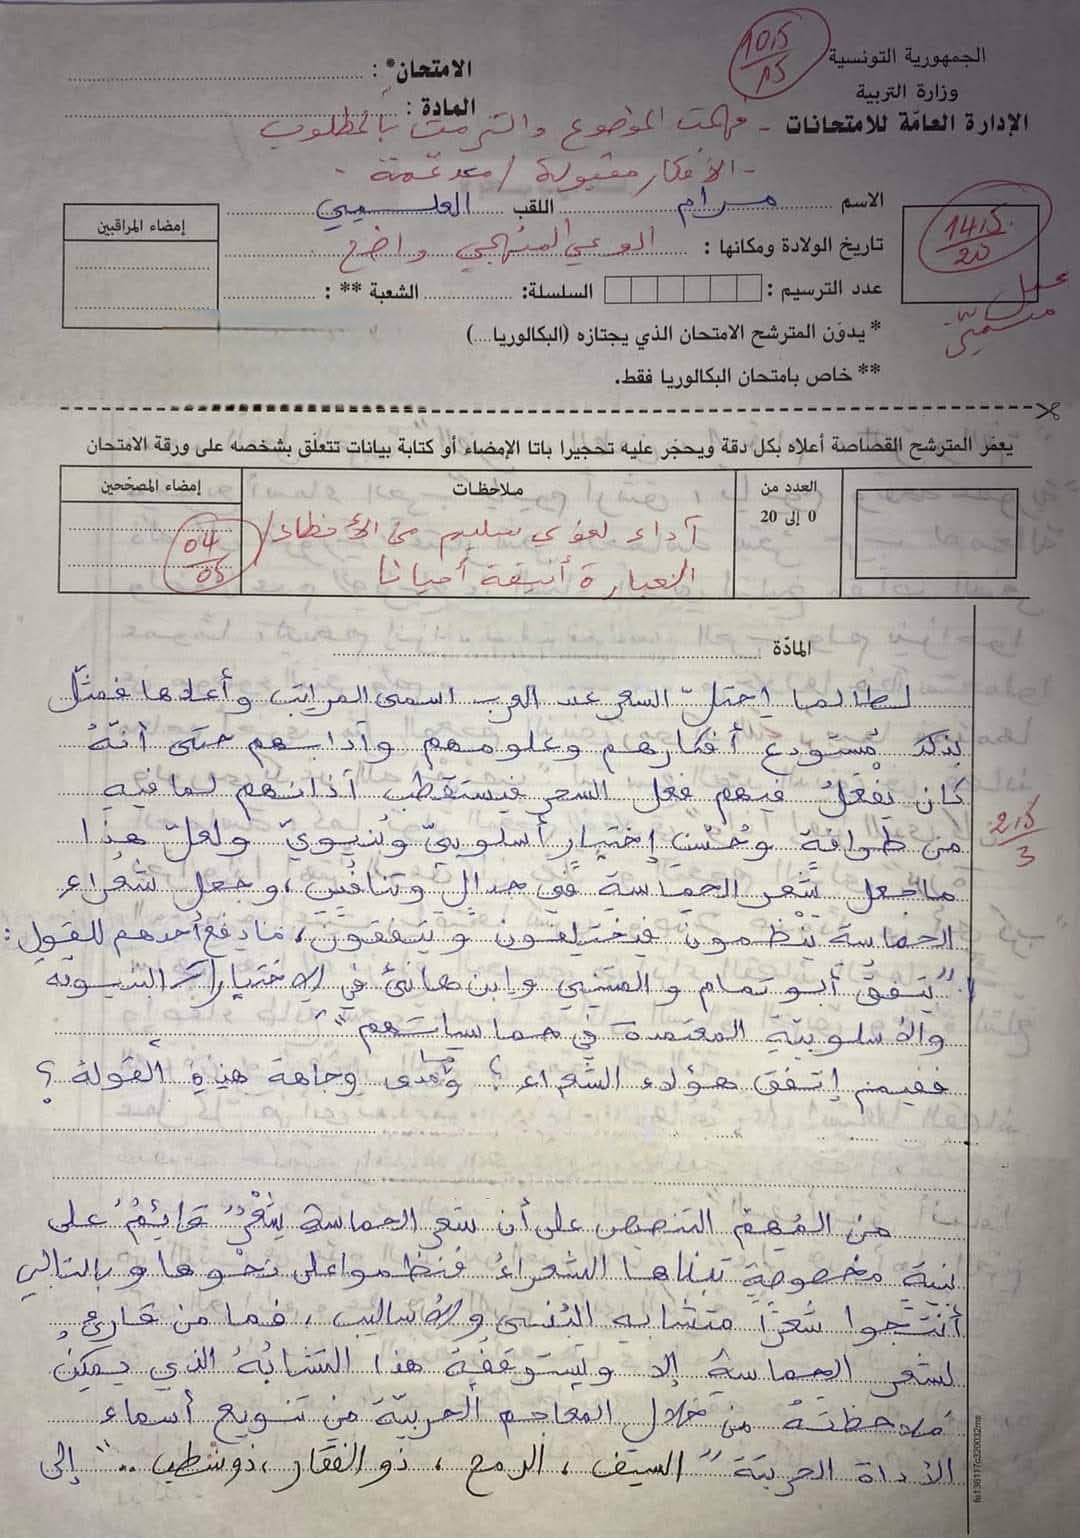 الجمهورية التونسية
وزارة التربية
الإدارة العامّة للامتحانات
10,5
15
الامتحان* :
المادة :
- فهمت الموضوع والتزمت بالمطلوب
- الأفكار مقبولة / مدعّمة -
الاسم مرام اللقب العلـيـمي
تاريخ الولادة ومكانها :
الوعي المنهجي واضح
عدد الترسيم : السلسلة: الشعبة ** :
إمضاء المراقبين
14,5
20
عمل
متميّز
* يدوّن المترشح الامتحان الذي يجتازه (البكالوريا....)
** خاص بامتحان البكالوريا فقط.
يعفر المترشح القصاصة أعلاه بكل دقة ويحجّر عليه تحجيرا باتا الإمضاء أو كتابة بيانات تتعلّق بشخصه على ورقة الامتحان
العدد من
0 إلى 20
ملاحظات
إمضاء المصحّحين
آداء لغوي سليم من الأخطاء /
العبارة أنيقة أحيانا
04
05
المادّة
لطالما احتلّ الشعر عند العرب اسمى المراتب وأعلاها فمثّل
بذلك مُستودع أفكارهم وعلومهم وآدابهم حتى أنّهُ
كان يفعلُ فيهم فعل السحر فيستقطب آذانهم لما فيه
من طرافة وحُسْن إختيار أسلوبيّ وبُنيويّ ولعلّ هذا
ما جعل شعر الحماسة في جدال وتنافس، وجعل شعراء
الحماسة ينْظمون فيختلفون ويتفقون، ما دفع أحدهم للقول:
"يتفق أبو تمام و المتنبي وابن هانئ في الاختيارات البنيويّة
والأسلوبيّة المعتمدة في حماسياتهم".
ففيمَ إتفق هؤلاء الشعراء؟ وما مدى وجاهة هذه القولة؟
2,5
3
من المُهمّ التنصيص على أن شعر الحماسة شعْرٌ قائِمٌ على
بنية مخصوصة تبناها الشعراءُ فنظموا على نحوها وبالتالي
أنتجوا شعْرًا متشابه البُنى والأساليب، فما من قارئٍ
لشعر الحماسة إلا ويستوقفهُ هذا التشابُهُ الذي يمكن
ملاحظتهُ من خلال المعاجم الحربيّة من تنويع أسماء
الأداة الحربيّة "السيف، الرمح، ذو الفقار، ذو شطب.." إلى